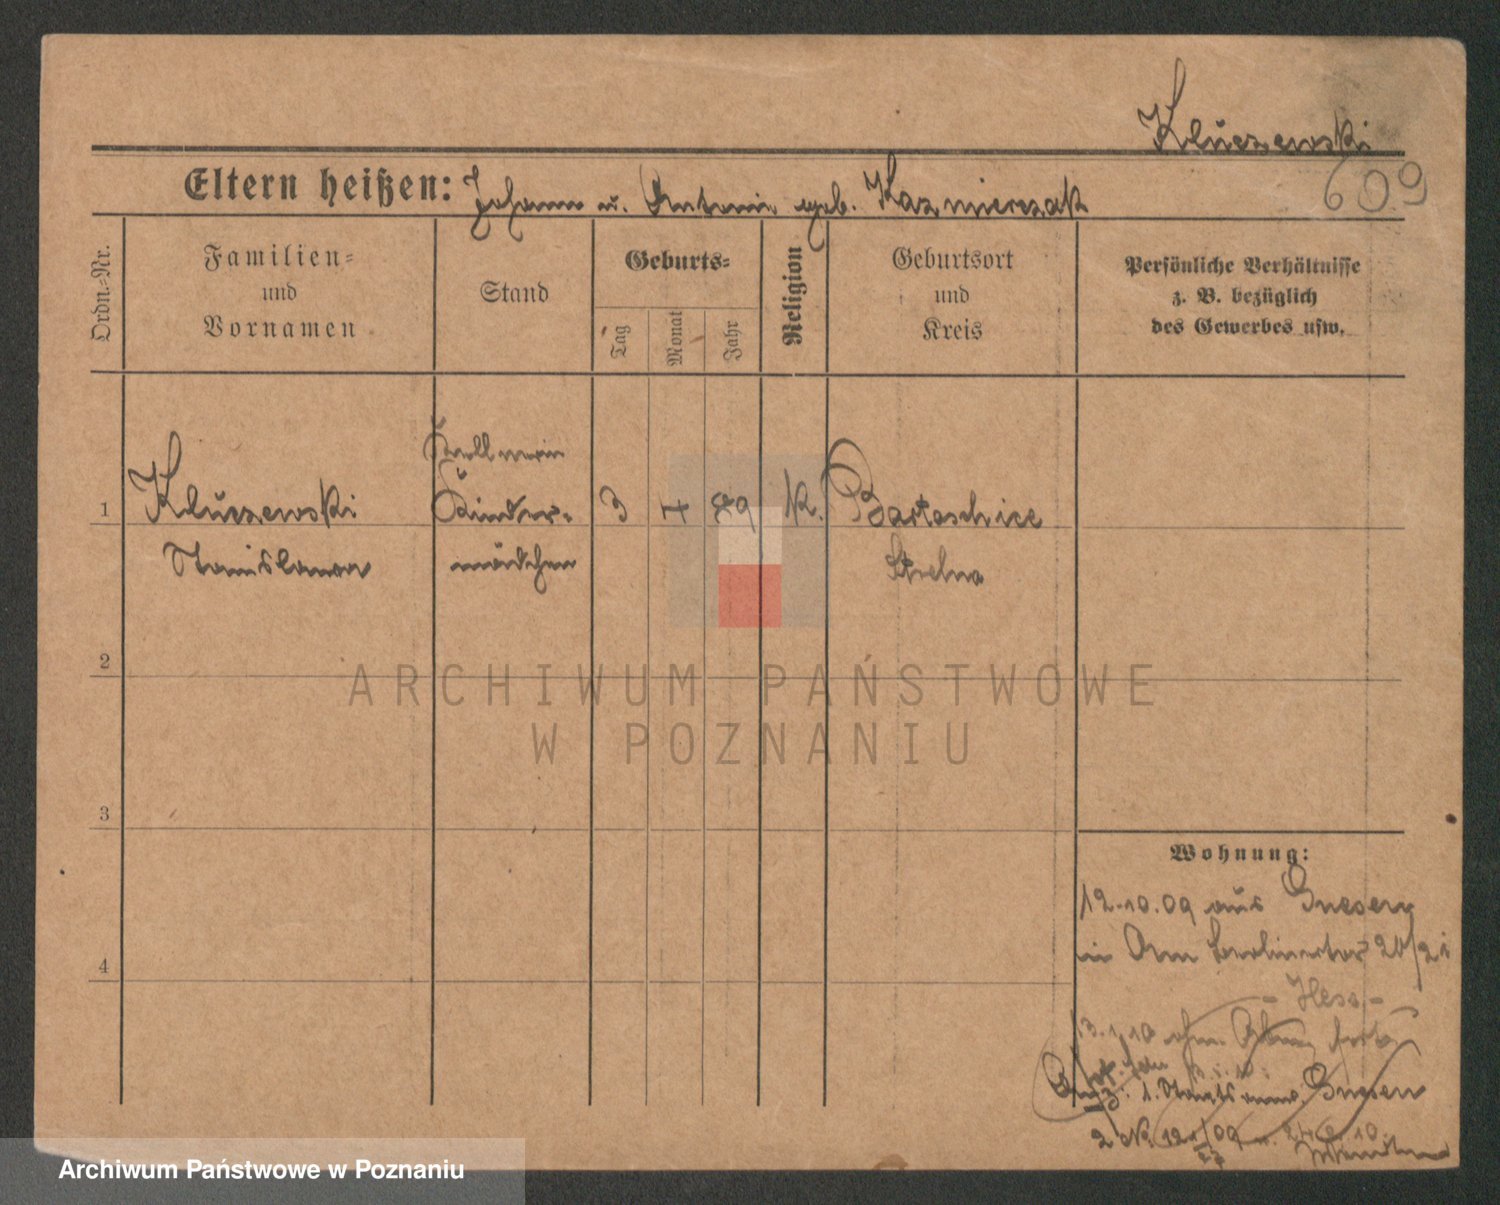 Kluczewski
609
Eltern heißen: Johann u. Antonie geb. Kazmierczak
Ordn.-Nr.
Familien-
und
Vornamen
Stand
Geburts-
Tag
Monat
Jahr
Religion
Geburtsort
und
Kreis
Persönliche Verhältnisse
z. B. bezüglich
des Gewerbes usw.
1
Kluczewski
Stanislawa
Kinder-
mädchen
3
4
89
K.
Bartoschice
Strelno
2
3
4
Wohnung:
12.10.09 aus Gnesen
in Am Berlinertor 20/21
- Hess -
13.1.10 ohne
1. Staatsanw. Gnesen
2
ARCHIWUM PAŃSTWOWE
W POZNANIU
Archiwum Państwowe w Poznaniu